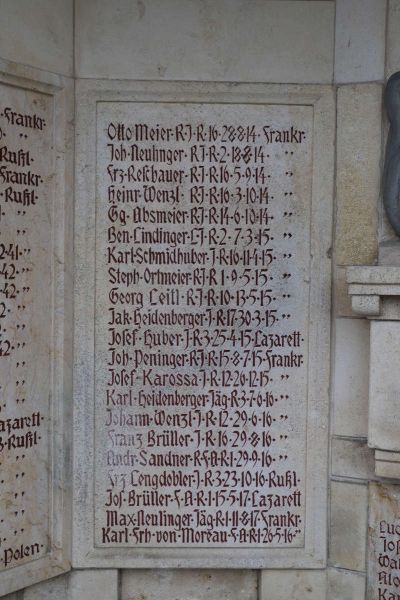 Frankr.
Rußl.
Frankr.
Rußl.
Lazarett.
Rußl.
Polen
Otto Meier·R·J·R·16·28·8·14·Frankr.
Joh·Neulinger·R·J·R·2·18·8·14· ”
Frz·Reßbauer·R·J·R·16·5·9·14· ”
Heinr·Wenzl·R·J·R·16·3·10·14· ”
Gg·Absmeier·R·J·R·14·6·10·14· ”
Ben·Lindinger·L·J·R·2·7·3·15· ”
Karl·Schmidhuber·J·R·16·11·4·15 ”
Steph·Ortmeier·R·J·R·1·9·5·15· ”
Georg Leitl·R·J·R·10·13·5·15· ”
Jak·Heidenberger·J·R·17·30·3·15· ”
Josef·Huber·J·R·3·25·4·15·Lazarett·
Joh·Peninger·R·J·R·15·8·7·15·Frankr
Josef·Karossa·J·R·12·26·12·15· ”
Karl·Heidenberger·Jäg·R·3·7·6·16· ”
Johann·Wenzl·J·R·12·29·6·16· ”
Franz Brüller·J·R·16·29·8·16· ”
Andr·Sandner·R·F·A·R·1·29·9·16· ”
Frz Lengdobler·J·R·3·23·10·16·Rußl.
Jos·Brüller·F·A·R·1·15·5·17·Lazarett
Max·Neulinger·Jäg·R·1·11·8·17·Frankr.
Karl·Frh·von·Moreau·F·A·R·1·26·5·16· ”